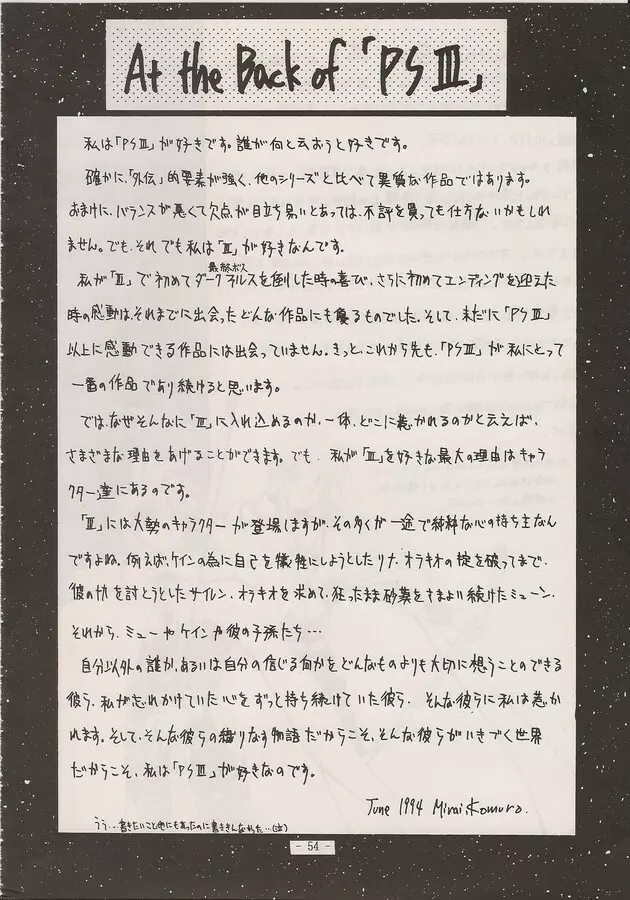 At the Back of「PSⅢ」
私は「PSⅢ」が好きです。誰が何と云おうと好きです。
確かに、「外伝」的要素が強く、他のシリーズと比べて異質な作品ではあります。
おまけに、バランスが悪くて欠点が目立ち易いとあっては、不評を買っても仕方ないかもしれ
ません。でも、それでも私は「Ⅲ」が好きなんです。
最終ボス
私が「Ⅲ」で初めてダークファルスを倒した時の喜び、さらに初めてエンディングを迎えた
時の感動は、それまでに出会ったどんな作品にも優るものでした。そして、未だに「PSⅢ」
以上に感動できる作品には出会っていません。きっと、これから先も、「PSⅢ」が私にとって
一番の作品であり続けると思います。
では、なぜそんなに「Ⅲ」に入れ込めるのか、一体、どこに惹かれるのかと云えば、
さまざまな理由をあげることができます。でも、私が「Ⅲ」を好きな最大の理由はキャラ
クター達にあるのです。
「Ⅲ」には大勢のキャラクターが登場しますが、その多くが一途で純粋な心の持ち主なん
ですよね。例えば、ケインの為に自己を犠牲にしようとしたリナ、オラキオの掟を破ってまで、
彼の仇を討とうとしたサイレン、オラキオを求めて、狂ったまま砂漠をさまよい続けたミューン、
それから、ミューやケインや彼の子孫たち・・・
自分以外の誰か、あるいは自分の信じる何かをどんなものよりも大切に想うことのできる
彼ら、私が忘れかけていた心をずっと持ち続けていた彼ら、そんな彼らに私は惹か
れます。そして、そんな彼らの織りなす物語だからこそ、そんな彼らがいきづく世界
だからこそ、私は「PSⅢ」が好きなのです。
June 1994 Mirai.Komuro.
うう・・・書きたいこと他にもあったのに書ききんなかった・・・(泣)
- 54 -